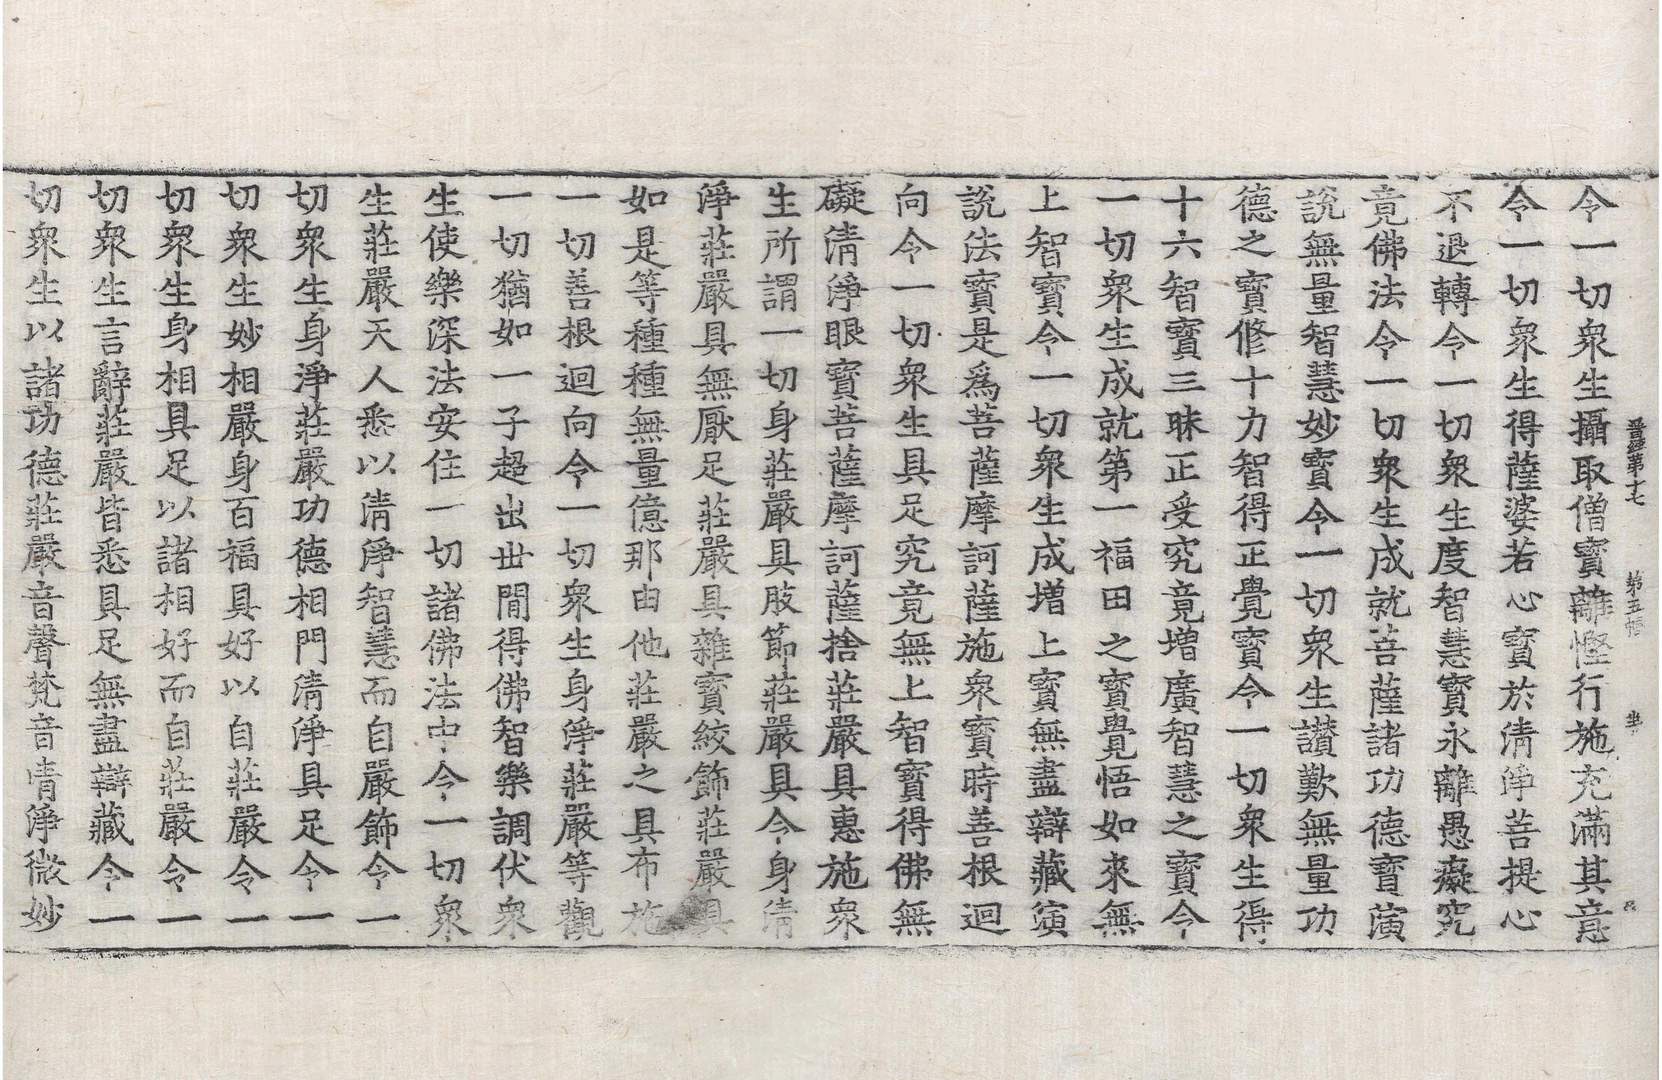 晉經第十七　第五幅　　坐
令一切衆生攝取僧寶離慳行施充滿其意
令一切衆生得薩婆若心寶於清淨菩提心
不退轉令一切衆生度智慧寶永離愚癡究
竟佛法令一切衆生成就菩薩諸功德寶演
說無量智慧妙寶令一切衆生讃歎無量功
德之寶修十力智得正覺寶令一切衆生得
十六智寶三昧正受究竟増廣智慧之寶令
一切衆生成就第一福田之寶覺悟如來無
上智寶令一切衆生成増上寶無盡辯藏演
說法寶是爲菩薩摩訶薩施衆寶時善根迴
向令一切衆生具足究竟無上智寶得佛無
礙清淨眼寶菩薩摩訶薩捨莊嚴具惠施衆
生所謂一切身莊嚴具肢節莊嚴具令身清
淨莊嚴具無厭足莊嚴具雜寶絞飾莊嚴具
如是等種種無量億那由他莊嚴之具布施
一切善根迴向令一切衆生身淨莊嚴等觀
一切猶如一子超出世間得佛智樂調伏衆
生使樂深法安住一切諸佛法中令一切衆
生莊嚴天人悉以清淨智慧而自嚴飾令一
切衆生身淨莊嚴功德相門清淨具足令一
切衆生妙相嚴身百福具好以自莊嚴令一
切衆生身相具足以諸相好而自莊嚴令一
切衆生言辭莊嚴皆悉具足無盡辯藏令一
切衆生以諸功德莊嚴音聲梵音清淨微妙